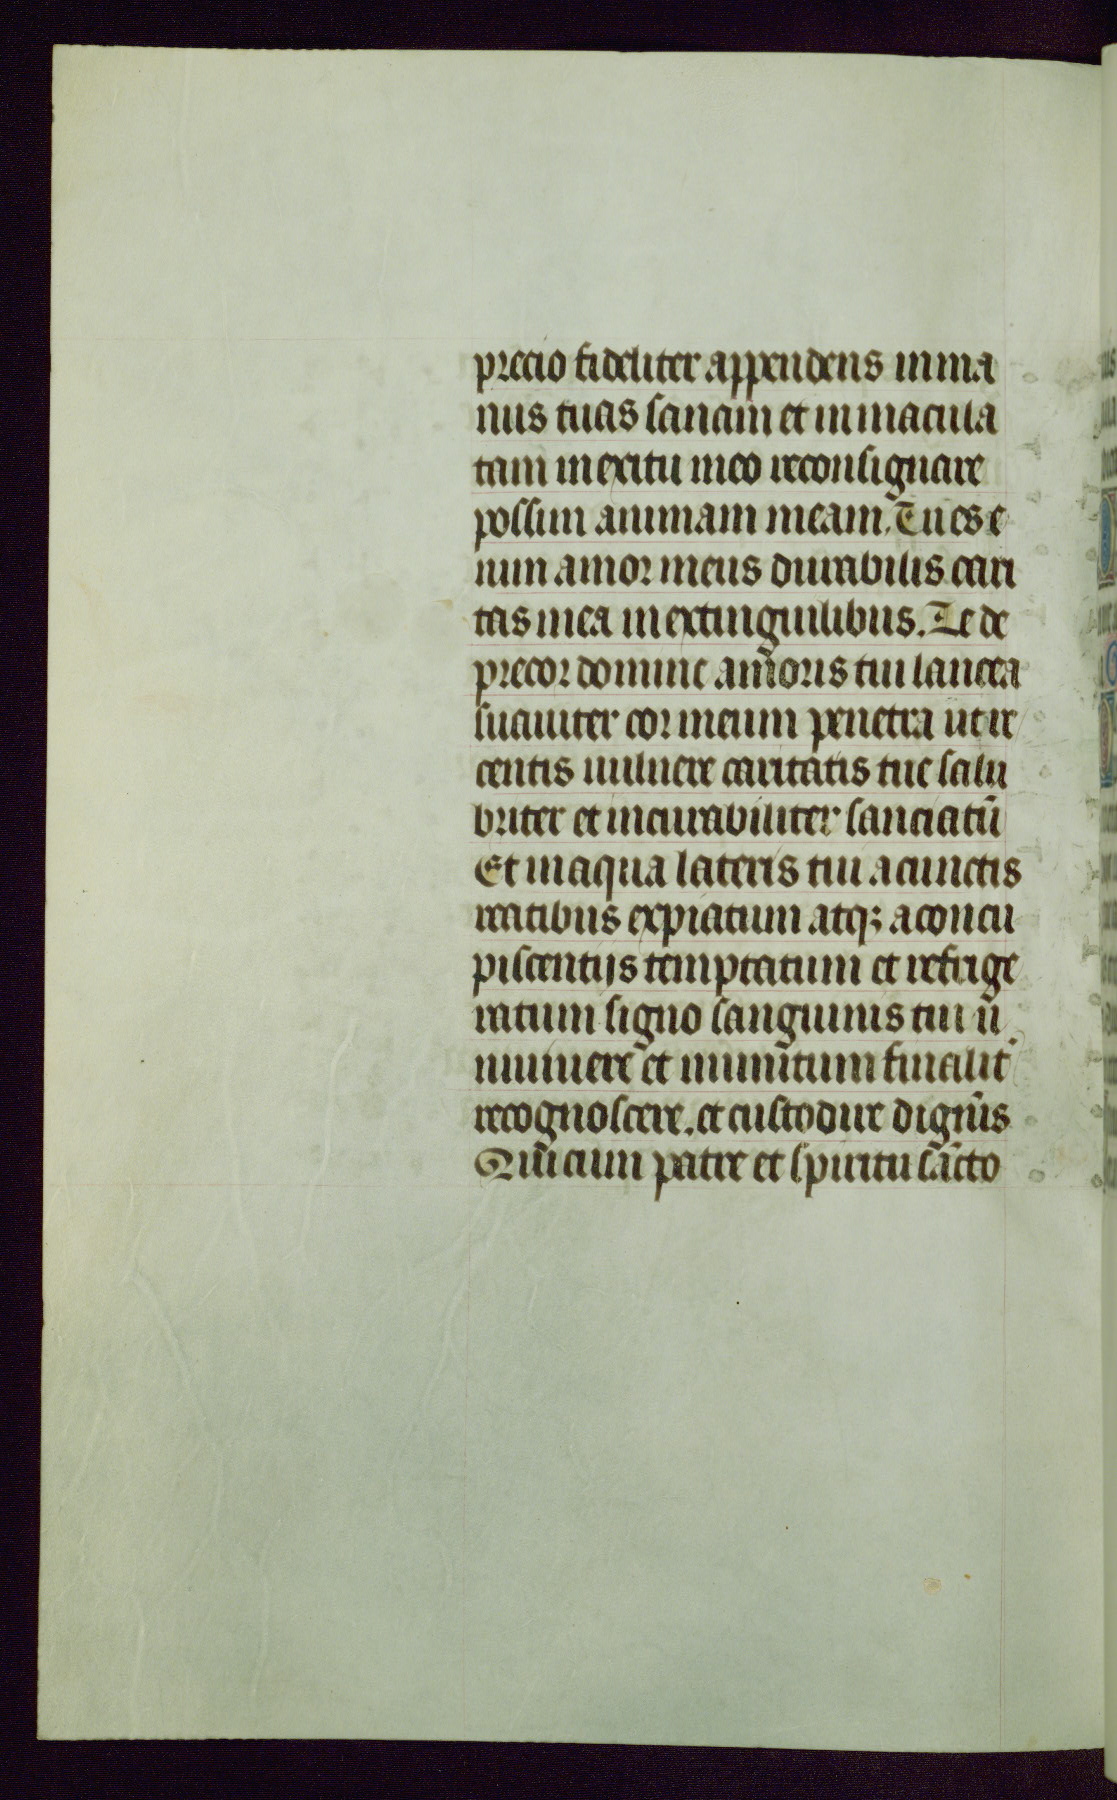 precio fideliter appendens in ma
nus tuas sanctam et inmacula
tam in exitu meo reconsignare
possim animam meam. Tu es e
nim amor meus durabilis cari
tas mea inextinguilibus. Te de
precor domine amoris tui lancea
suauiter cor meum penetra ut re
centis uulnere caritatis tue salu
briter et incurabiliter sanciatū
Et in aqua lateris tui a cunctis
reatibus expiatum atqꝫ a concu
piscentijs temptatum et refrige
ratum signo sanguinis tui
munitum finalit̄
recognoscere. et custodire dign̄is
Qui cum patre et spiritu sācto